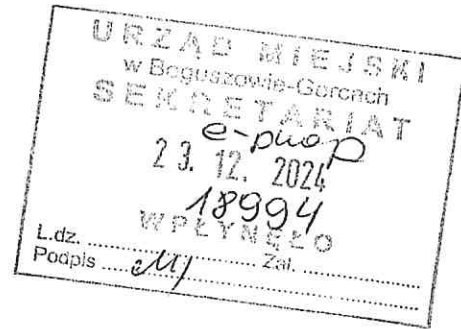 URZĄD MIEJSKI
w Boguszowie-Gorcach
SEKRETARIAT
e-puap
23. 12. 2024
18994
WPŁYNĘŁO
L.dz. .................... Zał. ....................
Podpis ....................